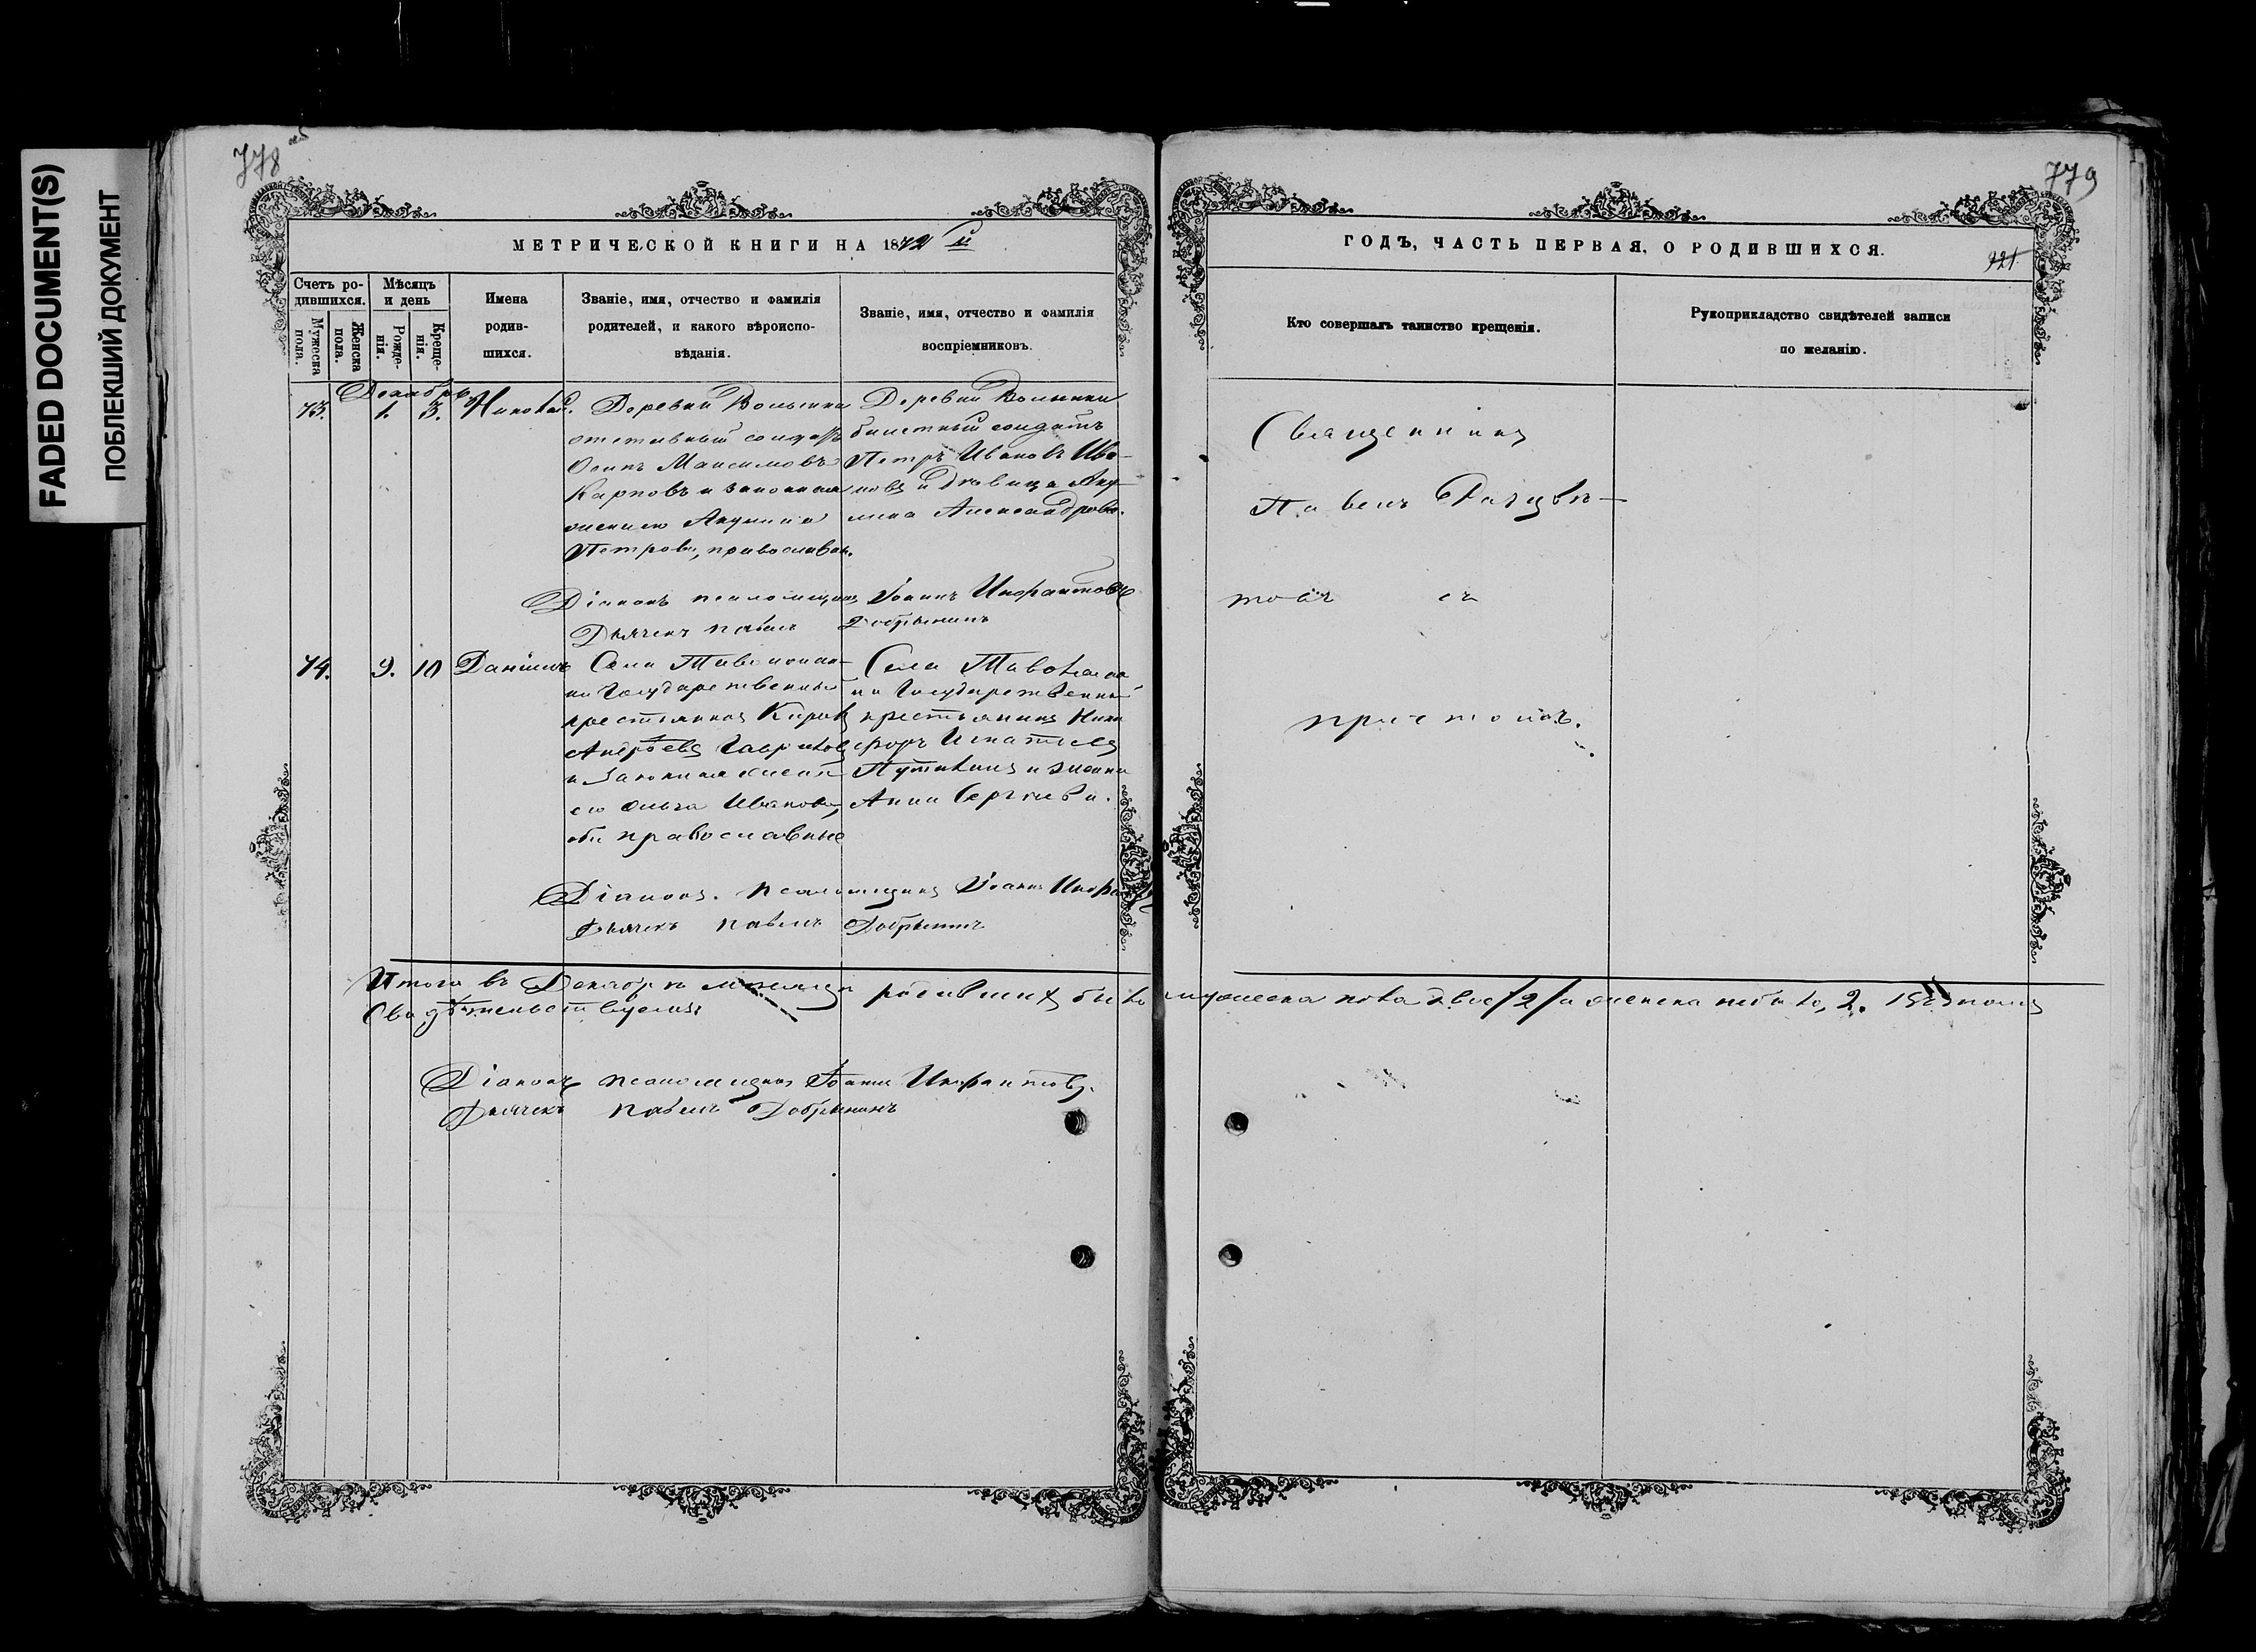 FADED DOCUMENT(S)
ПОБЛЕКШИЙ ДОКУМЕНТ
778
779
МЕТРИЧЕСКОЙ КНИГИ НА 1872 й
ГОДЪ, ЧАСТЬ ПЕРВАЯ, О РОДИВШИХСЯ.
921
Счетъ ро-
дившихся.
Мужеска
пола.
Женска
пола.
Мѣсяцъ
и день
Рожде-
нія.
Креще-
нія.
Имена
родив-
шихся.
Званіе, имя, отчество и фамилія
родителей, и какого вѣроиспо-
вѣданія.
Званіе, имя, отчество и фамилія
воспріемниковъ.
Кто совершалъ таинство крещенія.
Рукоприкладство свидѣтелей записи
по желанію.
Декабрь
73. 1. 3. Николай.
Деревни Волынки
отставный солдатъ
Осипъ Максимовъ
Карповъ и законная
жена его Акулина
Петрова, православн.
Деревни Волынки
билетный солдатъ
Петръ Ивановъ Ива-
новъ и девица Аку-
лина Александрова.
Священникъ
Павелъ
Діаконъ псаломщикъ Іоаннъ
Дьячекъ Павелъ Добрынинъ
тойъ съ
74. 9. 10 Даніилъ
Села Таволжан-
ки Государственный
крестьянинъ Карпъ
Андреевъ Гавриловъ
и законная жена
его Ольга Иванова,
оби православные
Села Таволжан
ки Государственный
крестьянинъ Ники
форъ Игнатьевъ
и жена
Анна Сергеева.
причтомъ.
Діаконъ. псаломщикъ Іоаннъ
Дьячекъ Павелъ Добрынинъ
Итого въ Декабрѣ месяцѣ родившихся было мужеска пола двое /2/ а женска небыло, 2. пола
Свидѣтельствуемъ:
Діаконъ псаломщикъ Іоаннъ
Дьячекъ Павелъ Добрынинъ